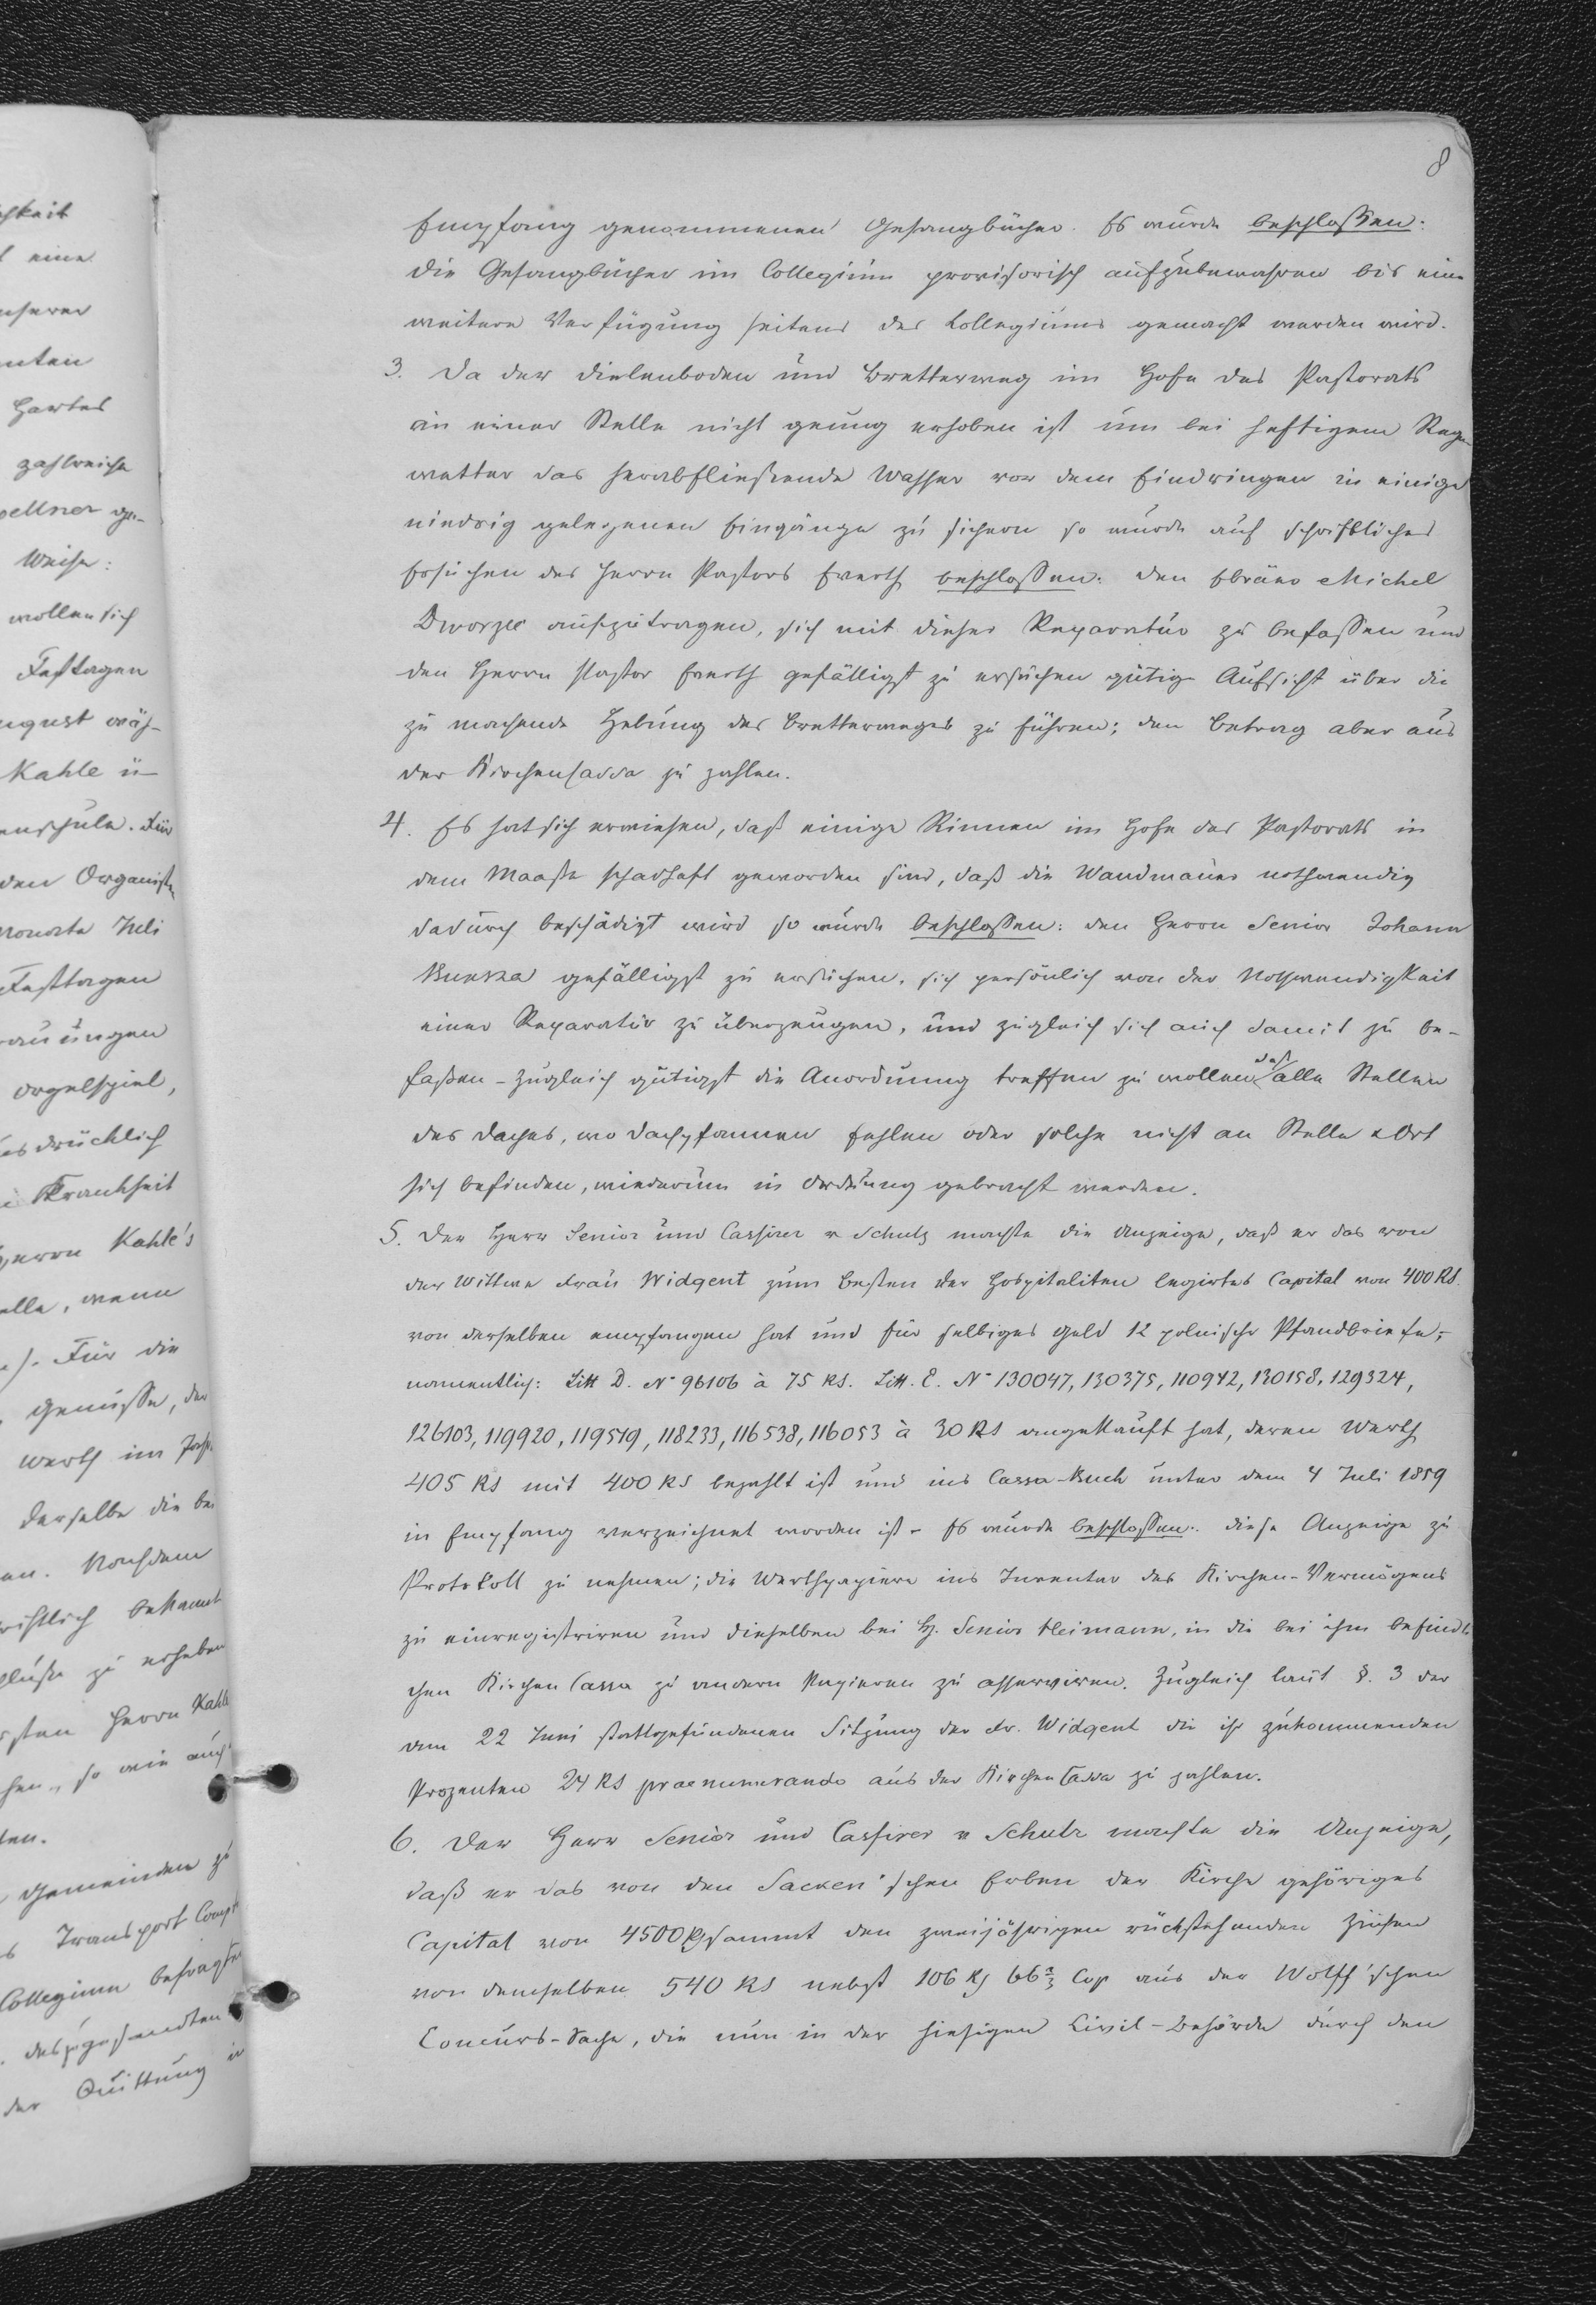 8
Empfang genommenen Gesangbücher. Es wurde beschlossen:
die Gesangbücher im Collegium provisorisch aufzubewahren bis eine
weitere Verfügung seitens des Collegiums gemacht werden wird.
3. Da der Dielenboden und Bretterweg im Hofe des Pastorats
an einer Stelle nicht genug erhoben ist um bei heftigem Regen
wetter das herabfließende Wasser vor dem Eindringen in einige
niedrig gelegenen Eingänge zu sichern so wurde auf schriftliches
Ersuchen des Herrn Pastors Everth beschlossen: den Ebräer Michel
Dworzec aufzutragen, sich mit dieser Reparatur zu befassen und
den Herrn Pastor Everth gefälligst zu ersuchen gütige Aufsicht über die
zu machende Hebung des Bretterweges zu führen; den Betrag aber aus
der Kirchencassa zu zahlen.
4. Es hat sich erwiesen, daß einige Rinnen im Hofe des Pastorats in
dem Maaße schadhaft geworden sind, daß die Wandmauer nothwendig
dadurch beschädigt wird so wurde beschlossen: den Herrn Senior Johann
gefälligst zu ersuchen, sich persönlich von der Nothwendigkeit
einer Reparatur zu überzeugen, und zugleich sich auch damit zu be-
faßen - zugleich gütigst die Anordnung treffen zu wollen daß alle Stellen
des Daches, wo Dachpfannen fehlen oder solche nicht an Stelle & Ort
sich befinden, wiederum in Ordnung gebracht werden.
5. Der Herr Senior und Cassirer v Schulz machte die Anzeige, daß er das von
der Wittwe Frau Widgent zum Besten der Hospitaliten legirtes Capital von 400 RS.
von derselben empfangen hat und für selbiges Geld 12 polnische Pfandbriefe,
namentlich: Litt D. No 96106 à 75 RS. Litt. E. No 130047, 130375, 110942, 130158, 129324,
126103, 119920, 119519, 118233, 116538, 116053 à 30 RS angekauft hat, deren Werth
405 RS mit 400 RS bezahlt ist und ins Cassa-Buch unter dem 4 Juli 1859
in Empfang verzeichnet worden ist - Es wurde beschlossen: diese Anzeige zu
Protokoll zu nehmen; die Werthpapiere ins Inventar des Kirchen-Vermögens
zu einregistriren und dieselben bei H. Senior Heimann, in die bei ihm befindli
chen Kirchen Cassa zu andern Papieren zu asserviren. Zugleich laut §. 3 der
am 22 Juni stattgefundenen Sitzung der Fr. Widgent die ihr zukommenden
Prozenten 24 RS praenumerando aus der Kirchen Cassa zu zahlen.
6. Der Herr Senior und Cassirer v Schulz machte die Anzeige,
daß er das von den Sacken'schen Erben der Kirche gehöriges
Capital von 4500 RS sammt den zweijährigen rückstehenden Zinsen
von demselben 540 RS nebst 106 RS 66 2/3 Cop aus der Wolff'schen
Concurs-Sache, die nun in der hiesigen Civil-Behörde durch den